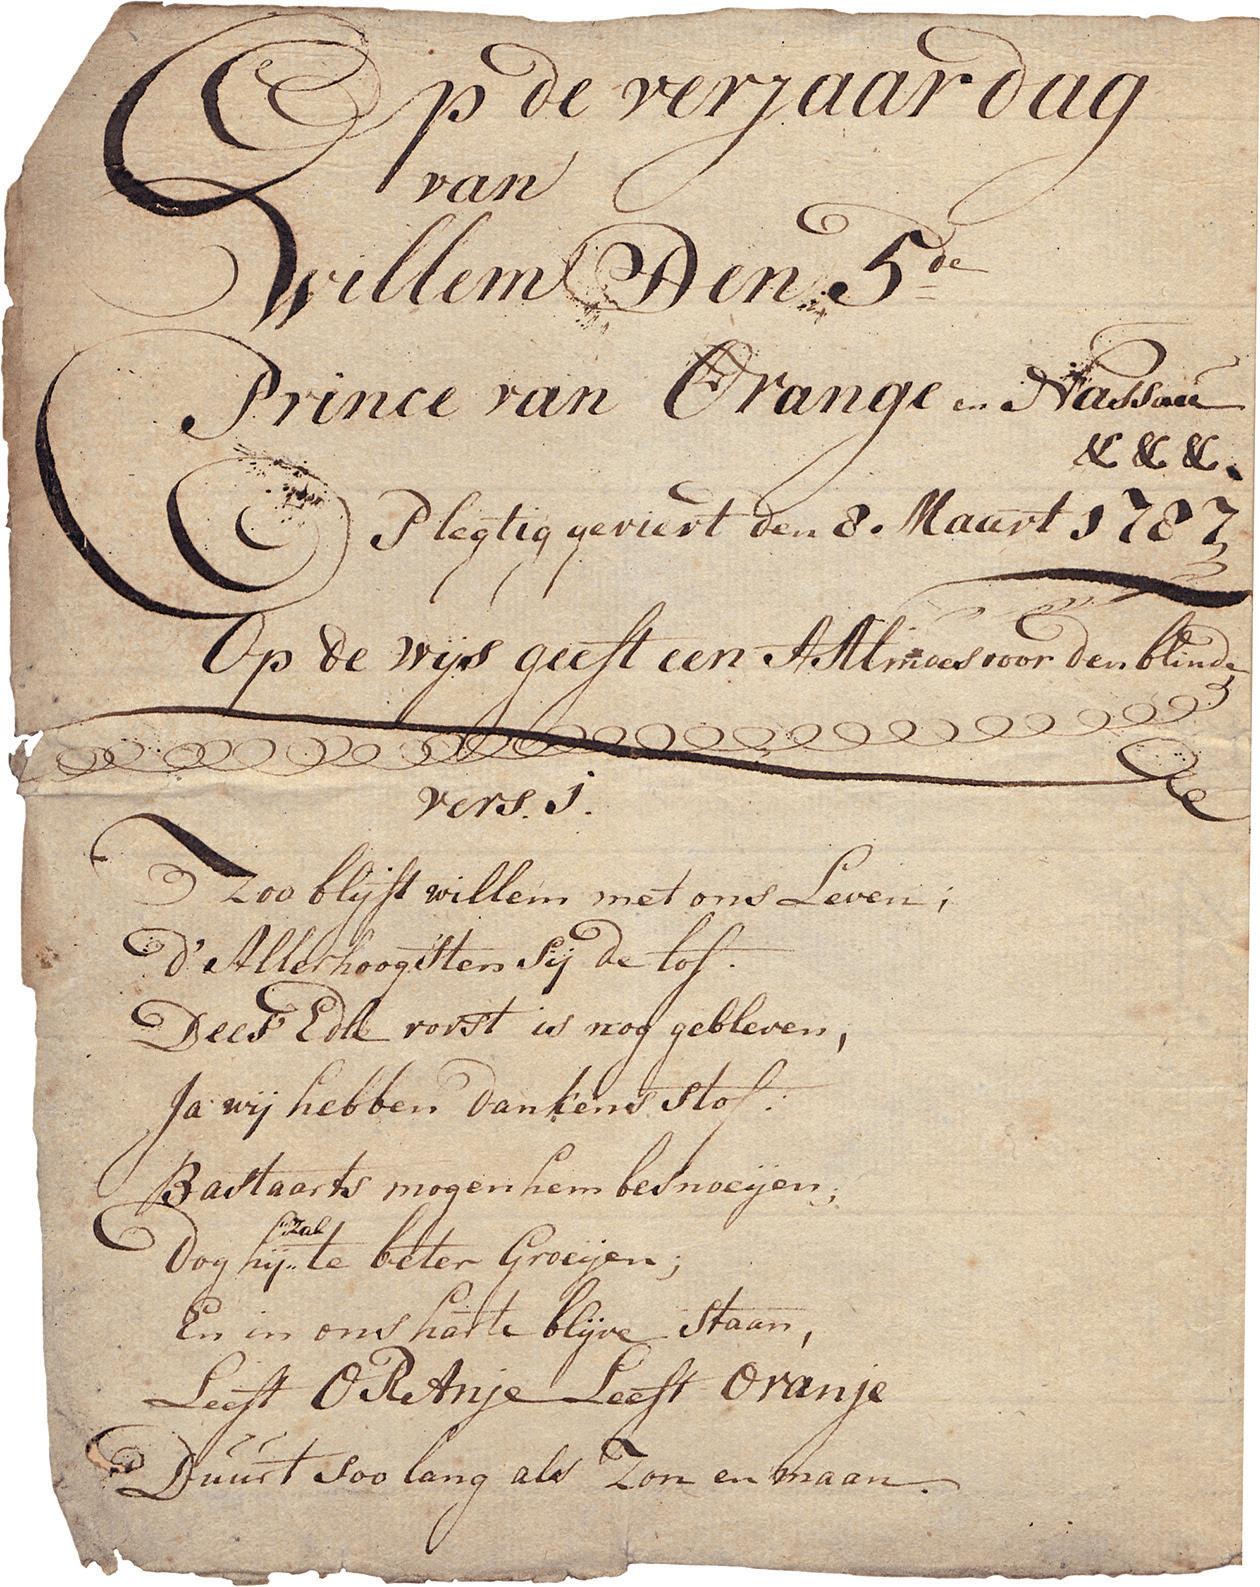 Op de verjaardag
van
Willem Den 5de
Prince van Orange en Nassau
& & &.
Plegtig geviert den 8. Maart 1787
Op de wijs geeft een AAlmoes voor den blinde
vers. 1.
Zoo blijft willem met ons Leven;
D' Allerhoogsten Sij De lof.
Dees Edle vorst is nog gebleven,
Ja wij hebben Dankens Stof.
Bastaarts mogen hem besnoeijen;
Dog hij zal te beter Groeijen;
En in ons harte blijve Staan,
Leeft ORAnje Leeft Oranje
Duurt Soo lang als Zon en maan.